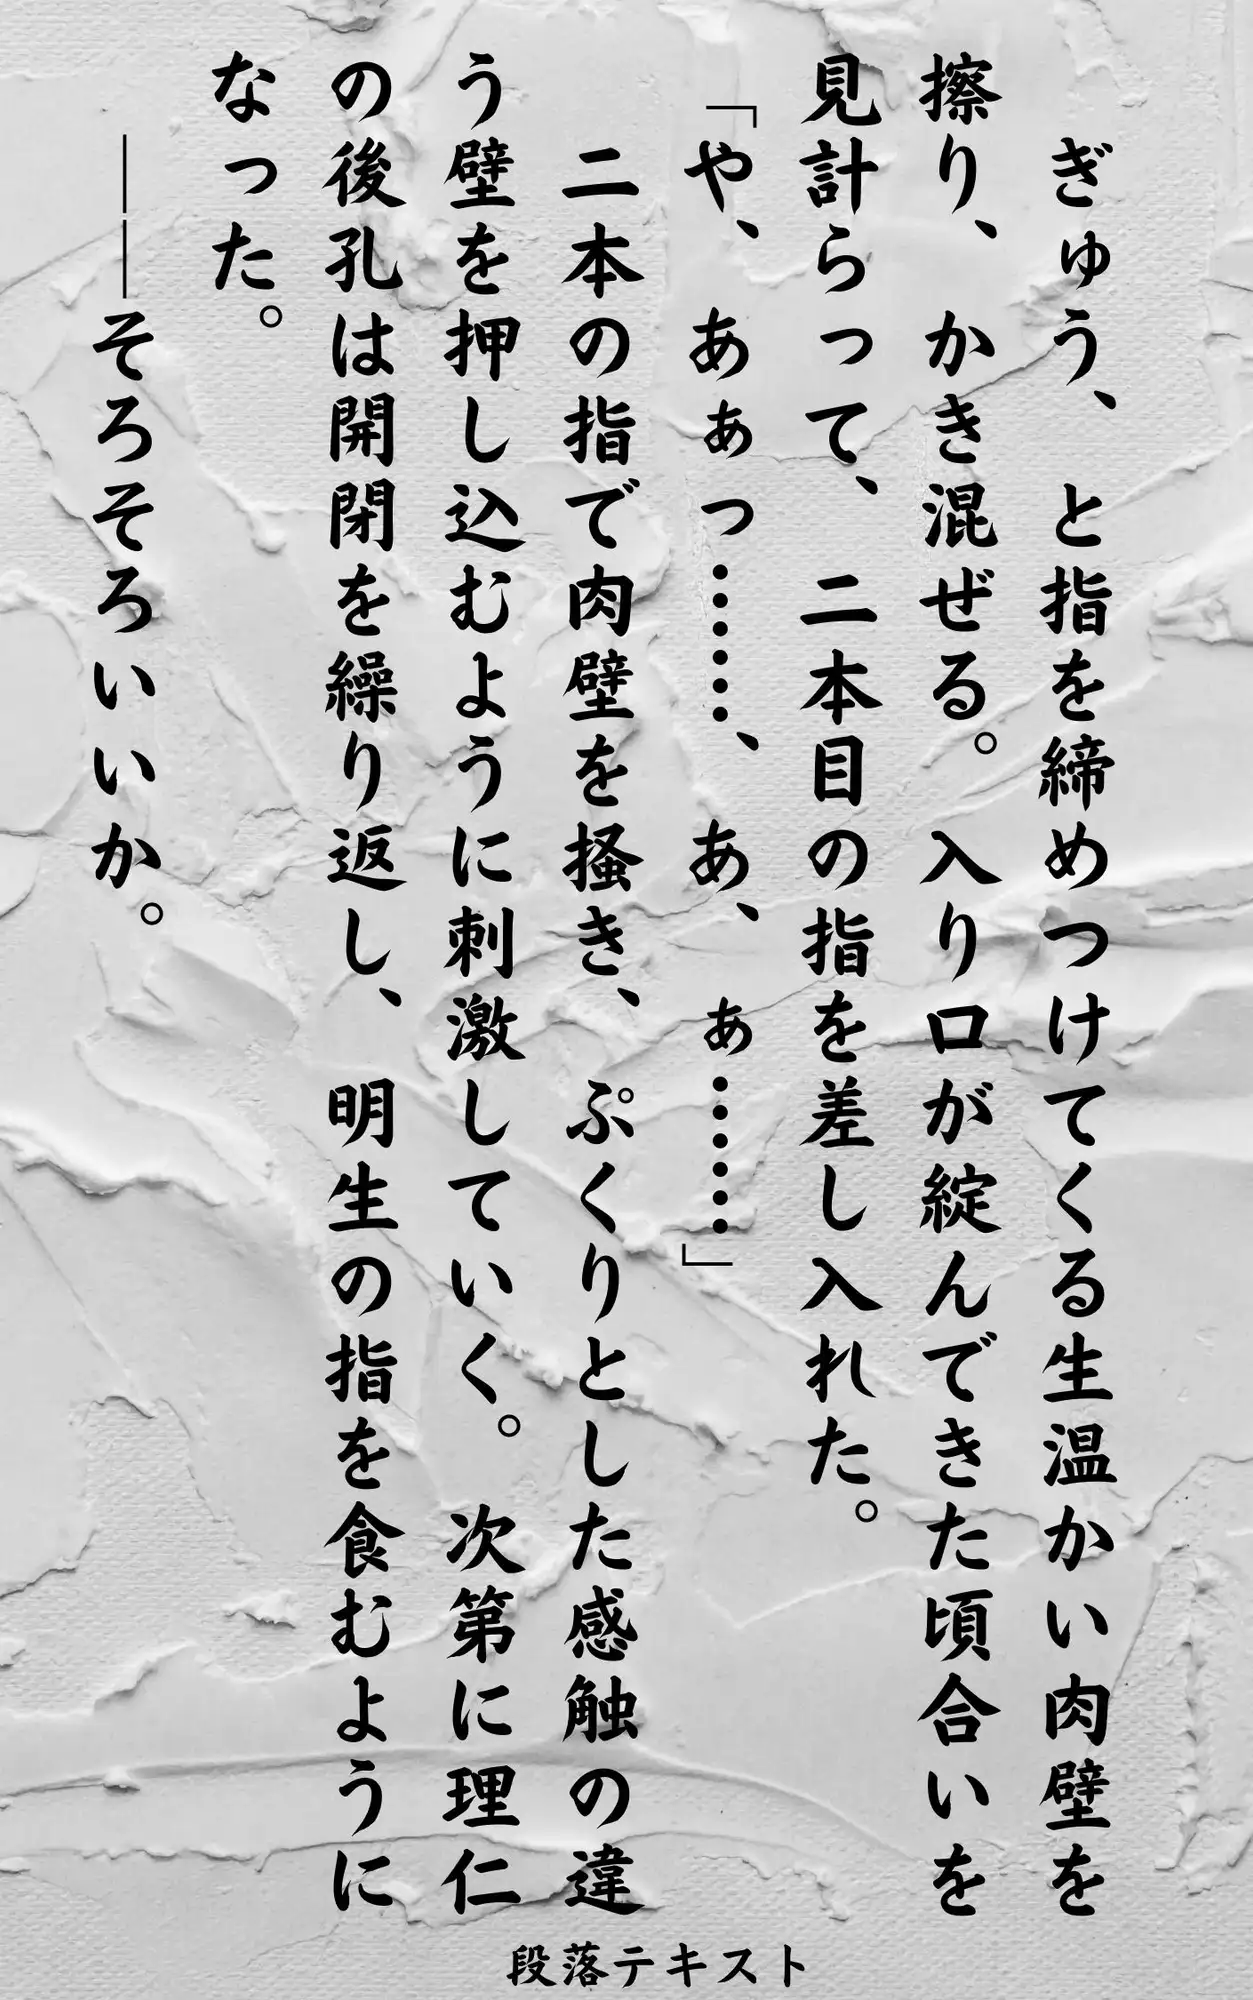 ぎゅう、と指を締めつけてくる生温かい肉壁を
擦り、かき混ぜる。入り口が綻んできた頃合いを
見計らって、二本目の指を差し入れた。
「や、あぁっ……、あ、ぁ……」
　二本の指で肉壁を掻き、ぷくりとした感触の違
う壁を押し込むように刺激していく。次第に理仁
の後孔は開閉を繰り返し、明生の指を食むように
なった。
　――そろそろいいか。
段落テキスト